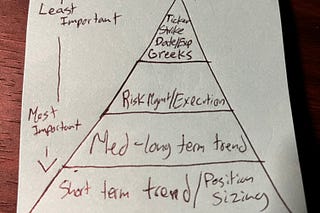 Least
Important
Most
Important
Ticker
Strike
Date/Exp
Greeks
Risk Mgmt/Execution
Med-long term trend
Short term trend/Position
Sizing